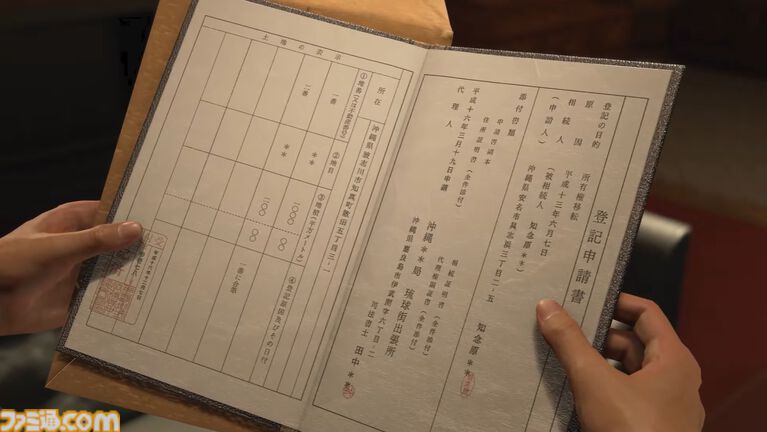 登記申請書
登記の目的 所有権移転
原因 平成十三年六月七日
相続人 (被相続人 知念原**)
(申請人) 沖縄県安名市具志浜三丁目二-五
知念原**
添付書類
申請書副本 相続証明書(全件添付)
住所証明書(全件添付) 代理権限証書(全件添付)
平成十六年三月十九日申請 沖縄**局 琉球街出張所
代理人 沖縄県慶良島市伊武関字六丁目-二
司法書士 田中**
土地の表示
所在 沖縄県披志川市知真町歌田五丁目三-二
①地番(又は不動産番号) ②地目 ③地積(平方メートル) ④登記原因及びその日付
一番 ** 一〇〇〇 〇〇
二番 ** 一〇〇 〇〇 一番に合筆
ファミ通.com